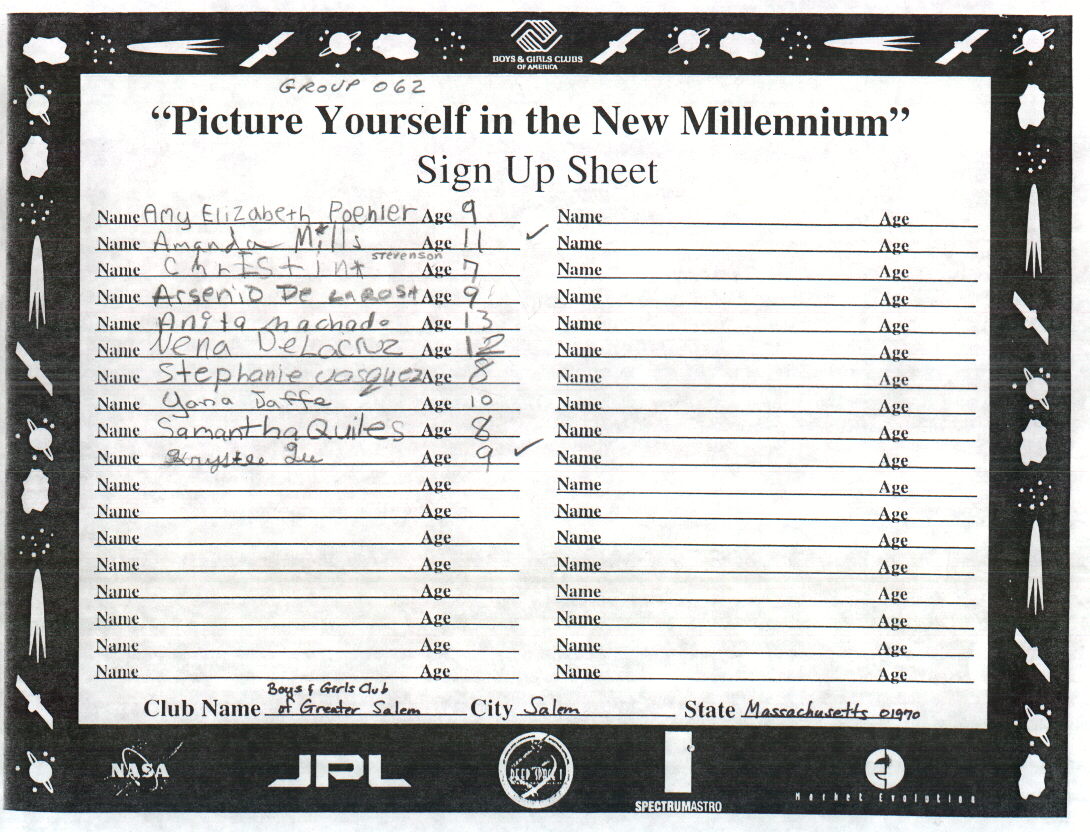 BOYS & GIRLS CLUBS
OF AMERICA
GROUP 062
“Picture Yourself in the New Millennium”
Sign Up Sheet
Name Amy Elizabeth Poehler Age 9 Name Age
Name Amanda Mills Age 11 ✓ Name Age
Name Christin Stevenson Age 7 Name Age
Name Arsenio De LaRosa Age 9 Name Age
Name Anita machado Age 13 Name Age
Name Nena DeLacruz Age 12 Name Age
Name Stephanie vasquez Age 8 Name Age
Name Yana Jaffe Age 10 Name Age
Name Samantha Quiles Age 8 Name Age
Name Age 9 ✓ Name Age
Name Age Name Age
Name Age Name Age
Name Age Name Age
Name Age Name Age
Name Age Name Age
Name Age Name Age
Name Age Name Age
Name Age Name Age
Boys & Girls Club
Club Name of Greater Salem City Salem State Massachusetts 01970
NASA JPL DEEP SPACE 1 SPECTRUMASTRO Market Evolution